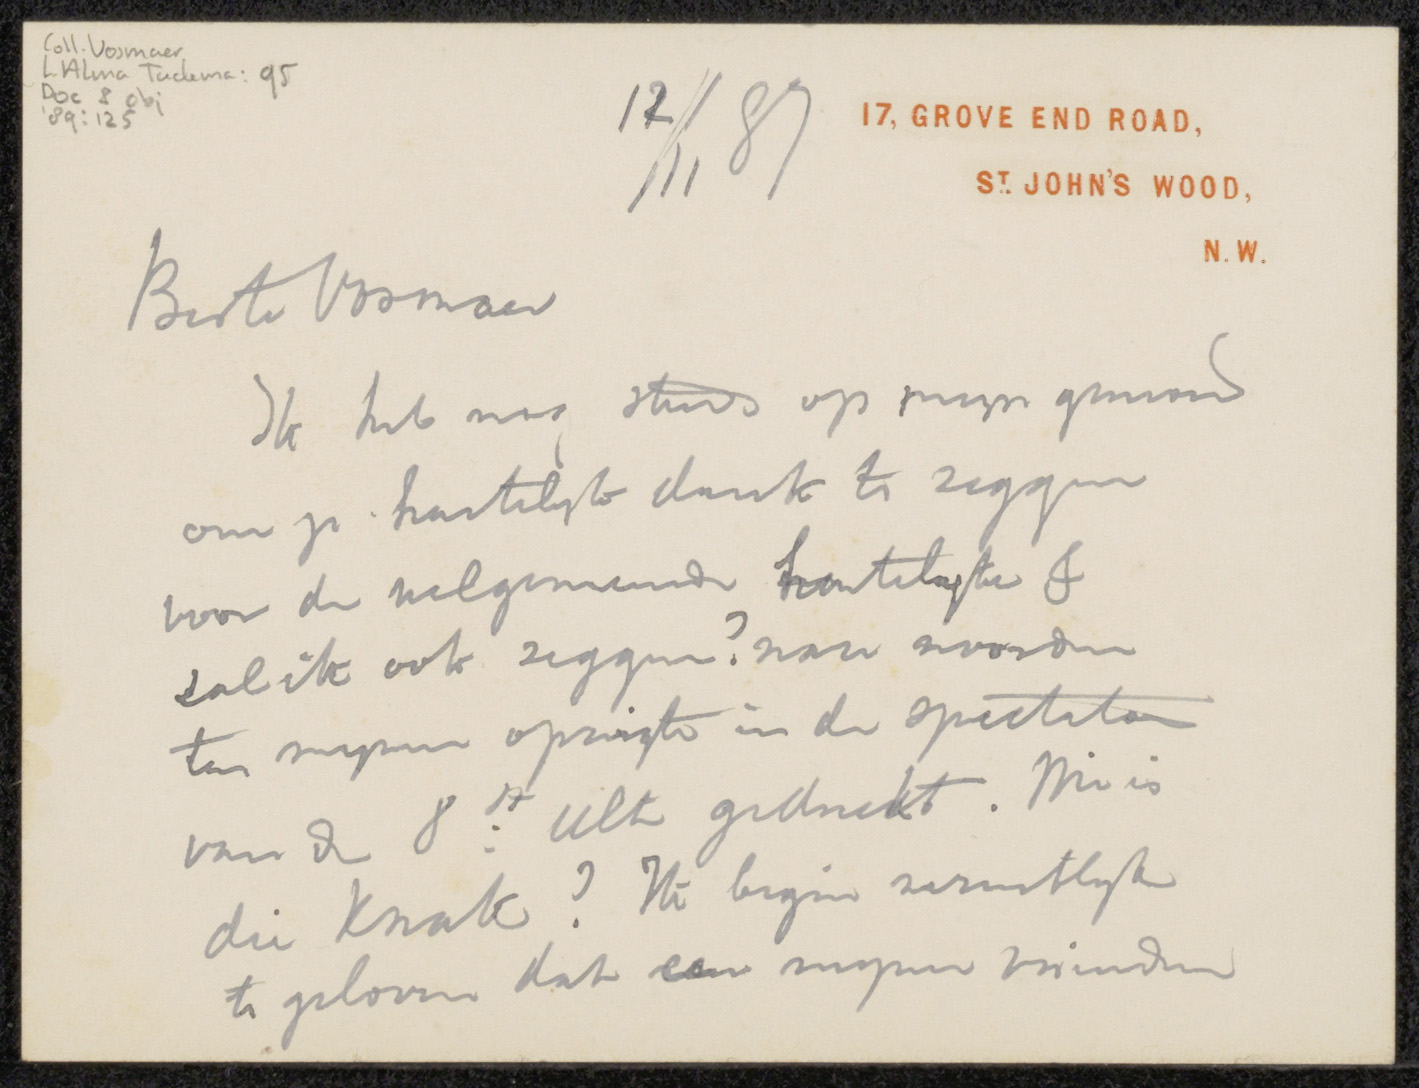 Coll. Vosmaer
L. Alma Tadema: 95
Doc 8 obj
'89:125
12/11 87
17, GROVE END ROAD,
ST. JOHN'S WOOD,
N.W.
Beste Vosmaer
Ik heb nog steeds op mijn gemoed
om je hartelijk dank te zeggen
voor de welgemeende hartelijke &
zal ik ook zeggen? ware woorden
ten mijnen opzigte in de spectator
van de 8st: Ulto gedrukt. Wie is
die Knak? Ik begin zernstlyk
te geloven dat een mijner vrienden